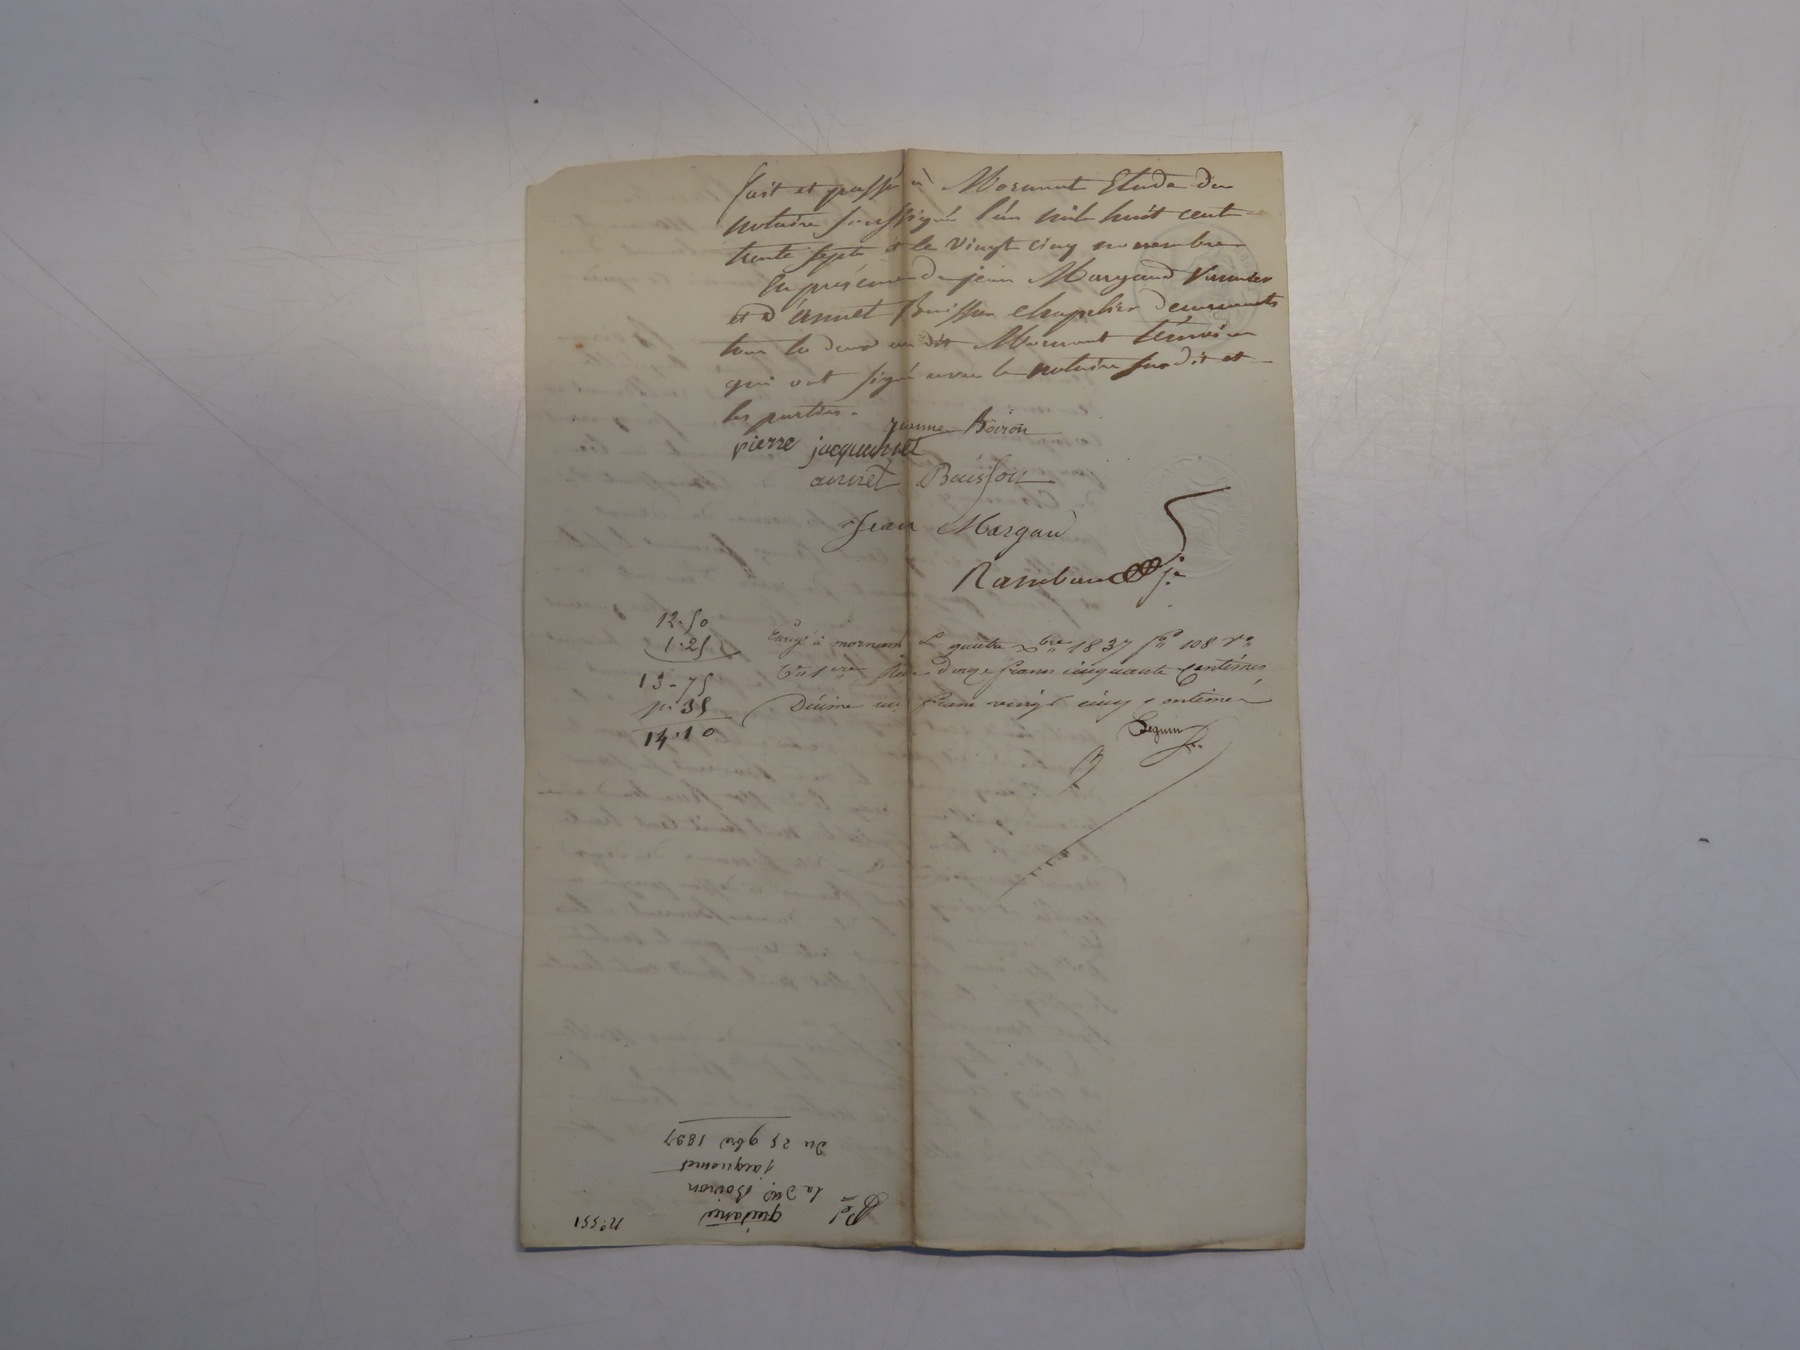 fait et passé à Mornant Etude du
notaire soussigné l'an mil huit cent
trente sept et le vingt cinq novembre
En présence de jean Margaud
et d'annet Buisson chapelier demeurants
tous les deux au dit Mornant témoins
qui ont signé avec le notaire susdit et
les parties.
jeanne Boiron
pierre jacquemet
annet Buisson
Jean Margaud
12.50
1.25
13-75
p. 35
14.10
à mornant Le quatre Xbre 1837 fo 108 Vo
d'onze francs cinquante centimes
Décime un franc vingt cinq centimes
Seguin
quittance
la Boiron
jacquemet
Du 25 9bre 1837
No 551